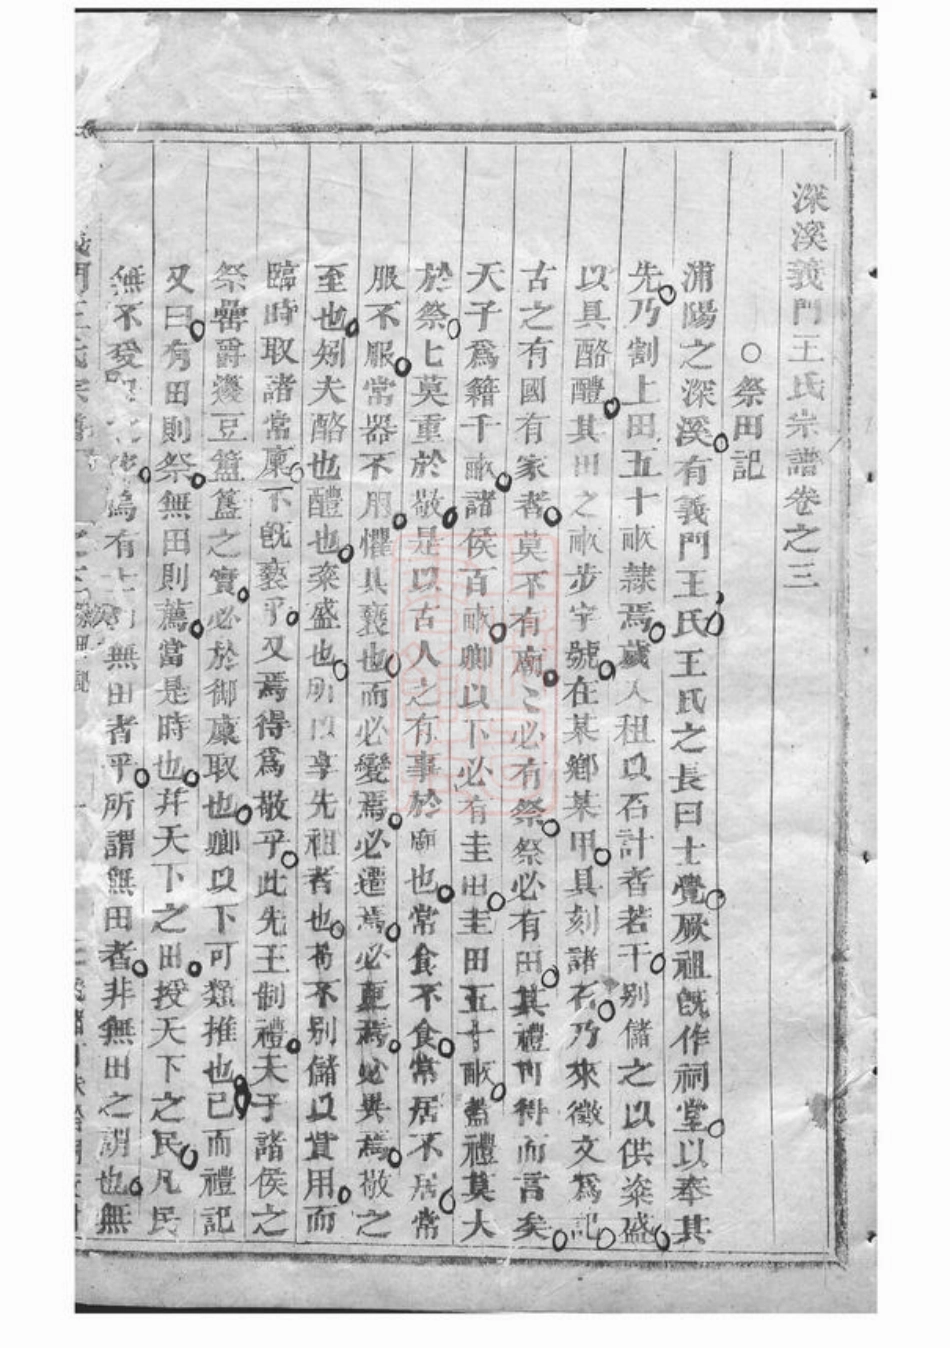 深溪義門王氏宗譜卷之三
○祭田記
浦陽之深溪有義門王氏王氏之長曰士覺厥祖旣作祠堂以奉其
先乃割上田五十畝隸焉歲入租以石計者若干别儲之以供粢盛
以具酪醴其田之畝步字號在某鄉某甲具刻諸石乃來徵文爲記
古之有國有家者莫不有廟〻必有祭祭必有田其禮可得而言矣
天子爲籍千畝諸侯百畝卿以下必有圭田圭田五十畝盖禮莫大
於祭〻莫重於敬是以古人之有事於廟也常食不食常居不居常
服不服常器不用懼其褻也而必變焉必遷焉必更焉必異焉敬之
至也矧夫酪也醴也粢盛也所以享先祖者也苟不别儲以貲用而
臨時取諸常廩不旣褻乎又焉得爲敬乎此先王制禮天子諸侯之
祭罍爵籩豆簠簋之實必於御廩取也卿以下可類推也已而禮記
又曰有田則祭無田則薦當是時也井天下之田授天下之民凡民
無不受 有 無田者乎所謂無田者非無田之謂也無